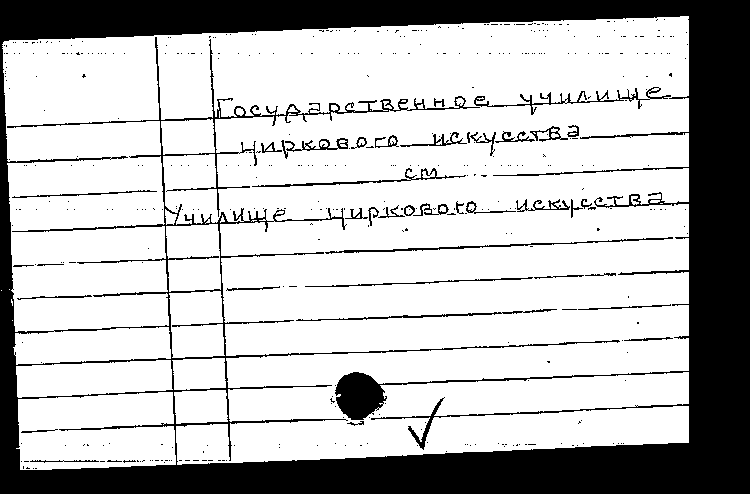 Государственное училище
циркового искусства
см
Училище циркового искусства